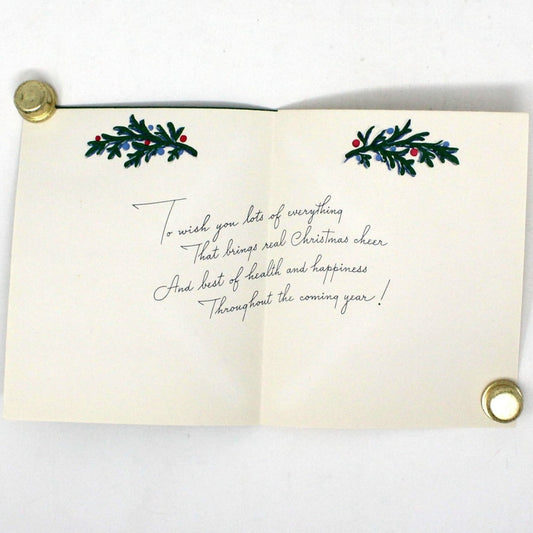 To wish you lots of everything
That brings real Christmas cheer
And best of health and happiness
Throughout the coming year!